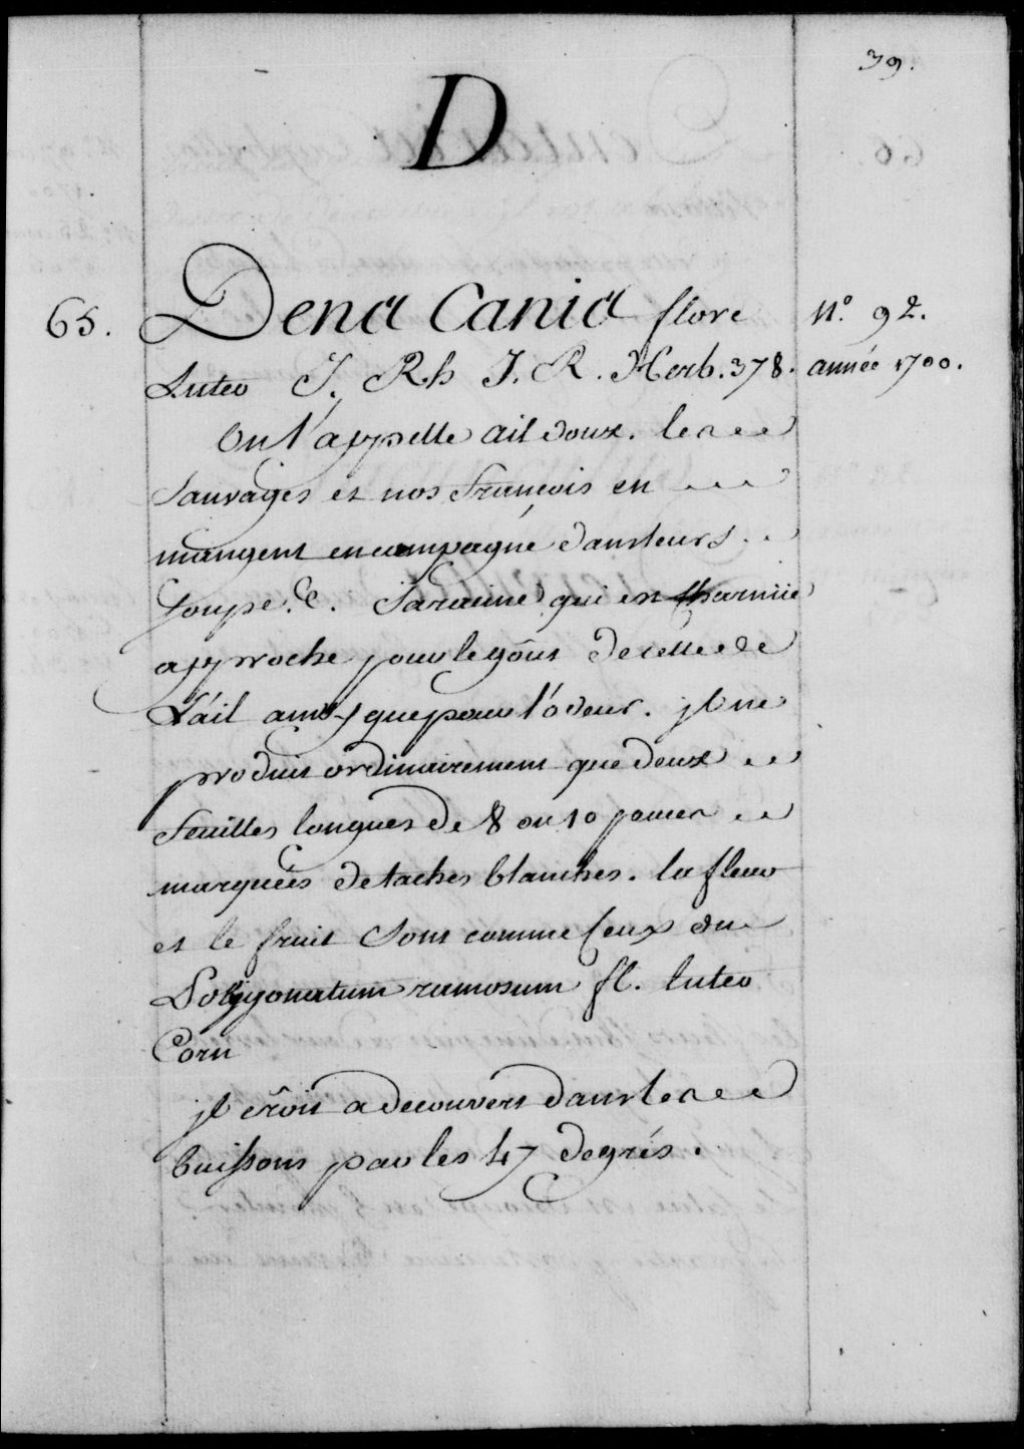 39.
D
65. Dena Cania flore N.º 92.
Luteo J. R. h J. R. Herb. 378. année 1700.
On l'appelle ail doux. les
Sauvages et nos françois en
mangent en campagne dans leurs
Soupe. &. Sa racine qui est charniie
approche pour le goût de celle de
L'ail ainsy que pour l'ôdeur. jl ne
produit ordinairement que deux
feuilles longues de 8 ou 10 pouces
marquées de taches blanches. la fleur
et le fruit Sont comme Ceux du
Polygonatum ramosum fl. luteo
Corn
jl crôit a decouvert dans les
buissons par les 47 degrés.